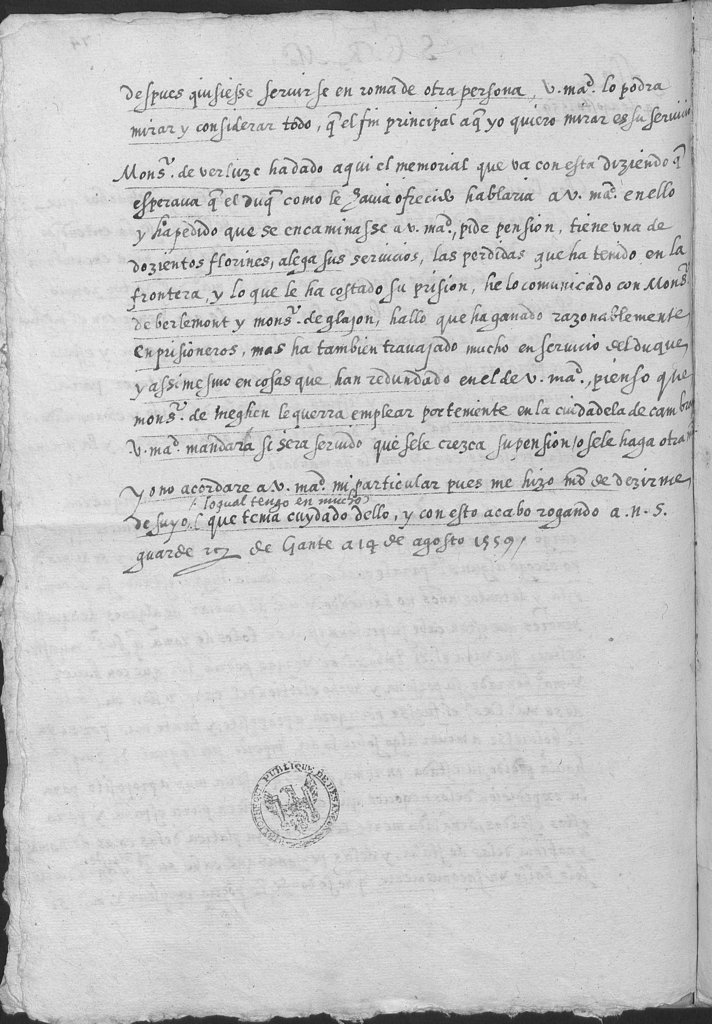 despues quisiesse servirse en roma de otra persona, v. mad. lo podra
mirar y considerar todo, q̃ el fin principal a q̃ yo quiero mirar es su servicio
Monsr. de verluze ha dado aqui el memorial que va con esta diziendo q̃
esperava q̃ el duq̃ como le havia ofrecido hablaria a v. mad. en ello
y ha pedido que se encaminasse a v. mad., pide pension, tiene una de
dozientos florines, alega sus servicios, las perdidas que ha tenido en la
frontera, y lo que le ha costado su prision, he lo comunicado con Monsr.
de berlemont y monsr. de glajon, hallo que ha ganado razonablemente
en prisioneros, mas ha tambien travajado mucho en servicio del duque,
y assi mesmo en cosas que han redundado en el de v. mad., pienso que
monsr. de meghen le querra emplear por teniente en la ciudadela de cambray
v. mad. mandara si sera servido que se le crezca su pension / o se le haga otra md
Yo no acordare a v. mad. mi particular pues me hizo md de dezirme
(: lo qual tengo en mucho)
de suyo / que tenia cuydado dello, y con esto acabo rogando a .n. S.
guarde &c de Gante a 14 de agosto 1559 /
BIBLIOTHEQUE PUBLIQUE DE BESANÇON